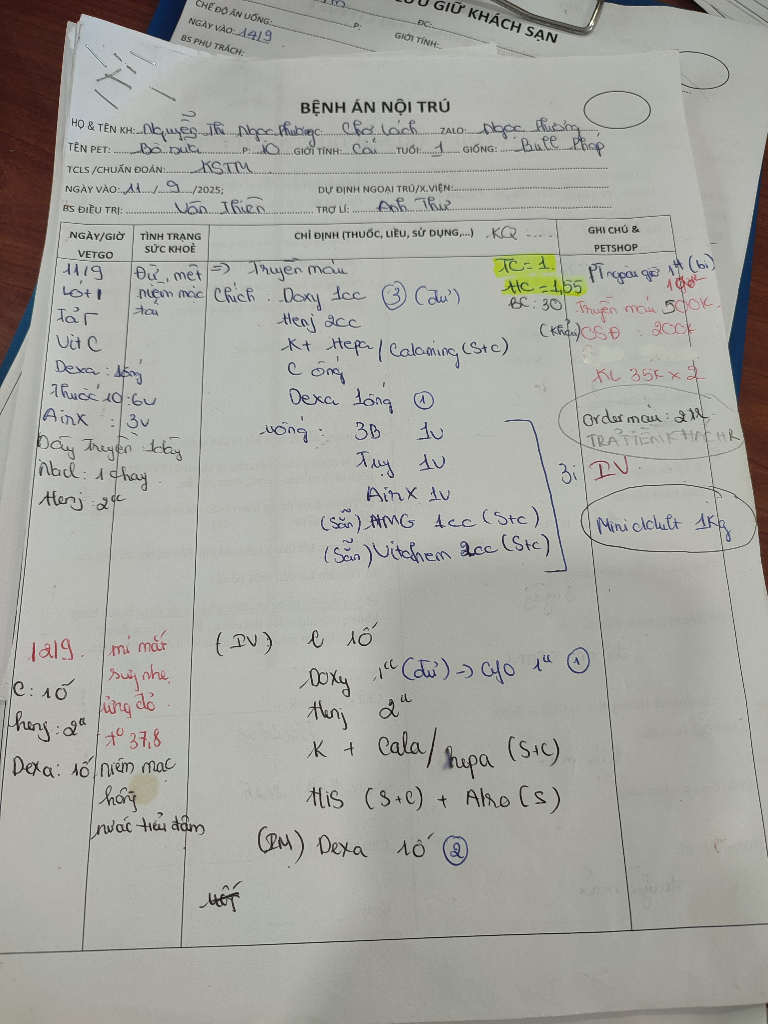 LƯU GIỮ KHÁCH SẠN
CHẾ ĐỘ ĂN UỐNG:
ĐC:
NGÀY VÀO: 14/9
P:
GIỚI TÍNH:
BS PHỤ TRÁCH:
BỆNH ÁN NỘI TRÚ
HỌ & TÊN KH: Nguyễn Thị Ngọc Phượng Chợ Lách ZALO: Ngọc Phượng
TÊN PET: Bò Sữa P: 10 GIỚI TÍNH: Cái TUỔI: 1 GIỐNG: Bull Pháp
TCLS /CHUẨN ĐOÁN: KSTM
NGÀY VÀO: 11 / 9 /2025; DỰ ĐỊNH NGOẠI TRÚ/X.VIỆN:
BS ĐIỀU TRỊ: Văn Thiên TRỢ LÍ: Anh Thư
NGÀY/GIỜ VETGO
TÌNH TRẠNG SỨC KHOẺ
CHỈ ĐỊNH (THUỐC, LIỀU, SỬ DỤNG,...) KQ ....
GHI CHÚ & PETSHOP
11/9
Lót 1
Tả T
Vit C
Dexa: 1 ống
Thuốc 10: 6v
AinX : 3v
Dây Truyền 1 dây
Nacl: 1 chay
Henj: 2cc
Đừ, mệt
niệm mạc
tái
=> Truyền máu
TC = 1.
HC = 1,55
BC: 30
Chích: Doxy 1cc (3) (đứ)
Henj 2cc
K + Hepa / Calaming (S+c)
C ống
Dexa 1 ống (1)
uống: 3B 1v
Tuy 1v
AinX 1v
(Sẵn) AMG 1cc (S+c)
(Sẵn) Vitchem 2cc (S+c)
3i
PT ngoài giờ 1H (bi)
Truyền máu 500K
(Khẩu) CSĐ : 200k
KL 35K x 2
Order máu: 2tr
TRẢ TIỀN KHÁC HR
IV.
Mini adult 1Kg
12/9.
C: 1ố
henj: 2cc
Dexa: 1ố
mi mắt
sưng nhẹ
ửng đỏ
t° 37,8
niêm mạc
hồng
nước tiểu đậm
(IV) C 1ố
Doxy 1cc (đứ) -> c/o 1cc (1)
Henj 2cc
K + Cala / hepa (S+C)
His (S+C) + Atro (S)
(IM) Dexa 1ố (2)